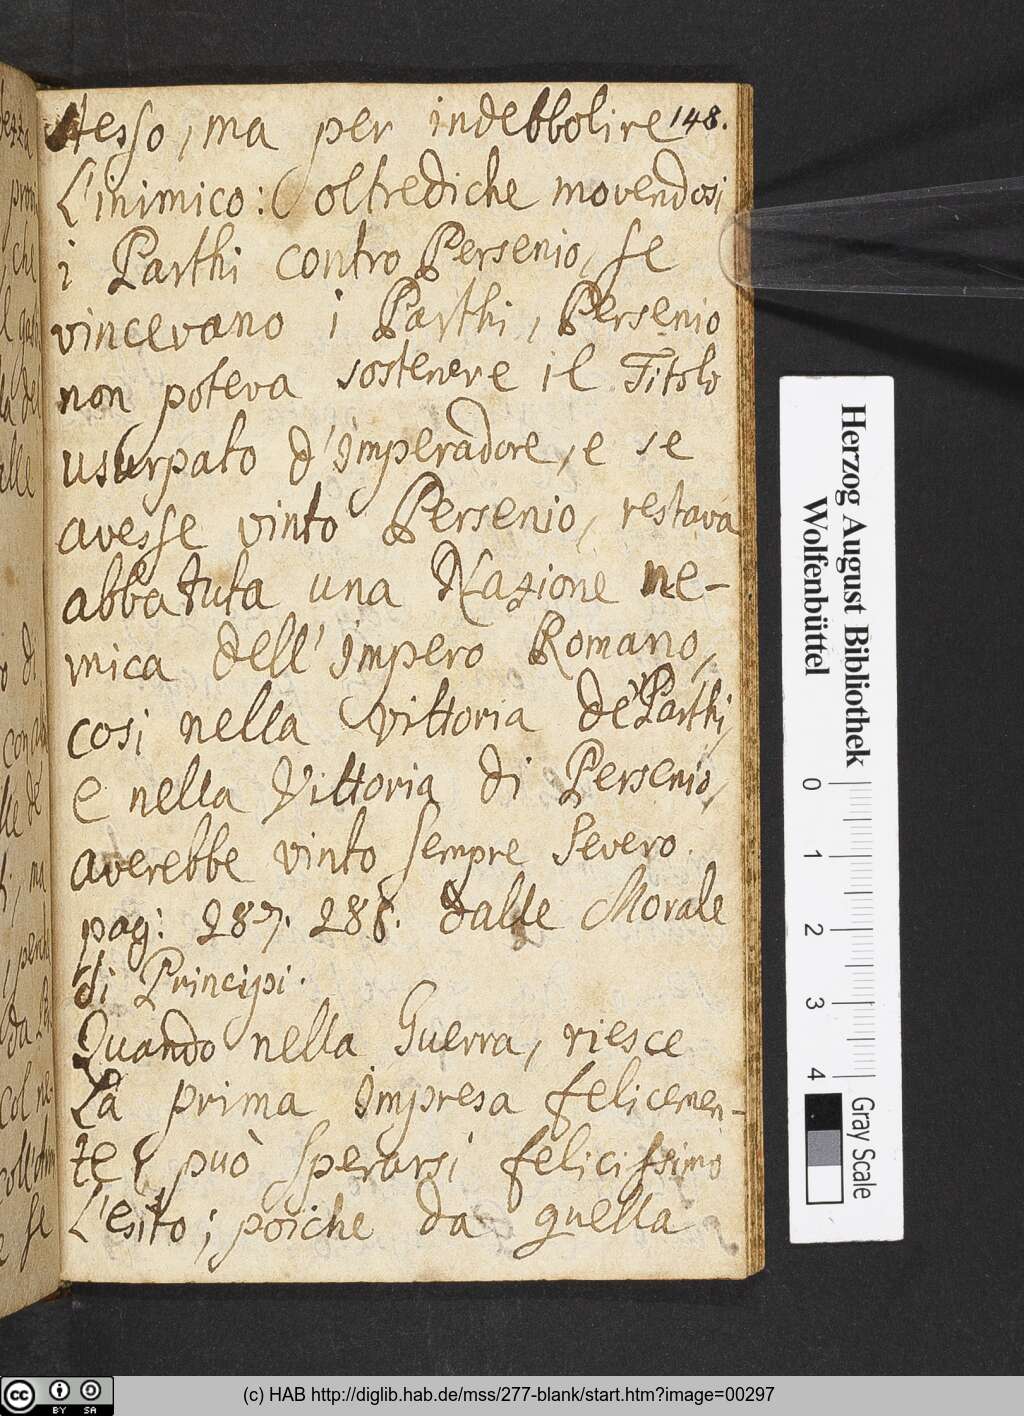 stesso, ma per indebbolire 148.
L'inimico: oltrediche movendosi
i Parthi contro Persenio, se
vincevano i Parthi, Persenio
non poteva sostenere il Titolo
usurpato d'Imperadore, e se
avesse vinto Persenio, restava
abbatuta una Nazione ne-
mica dell'Impero Romano,
cosi nella vittoria de' Parthi,
e nella Vittoria di Persenio,
averebbe vinto sempre Severo.
pag: 287. 288. dalle Morale
di Principi.
Quando nella Guerra, riesce
La prima Impresa felicemen-
te, può sperarsi felicissimo
L'esito; poiche da quella
Herzog August Bibliothek
Wolfenbüttel
0 1 2 3 4
Gray Scale
cc BY SA
(c) HAB http://diglib.hab.de/mss/277-blank/start.htm?image=00297